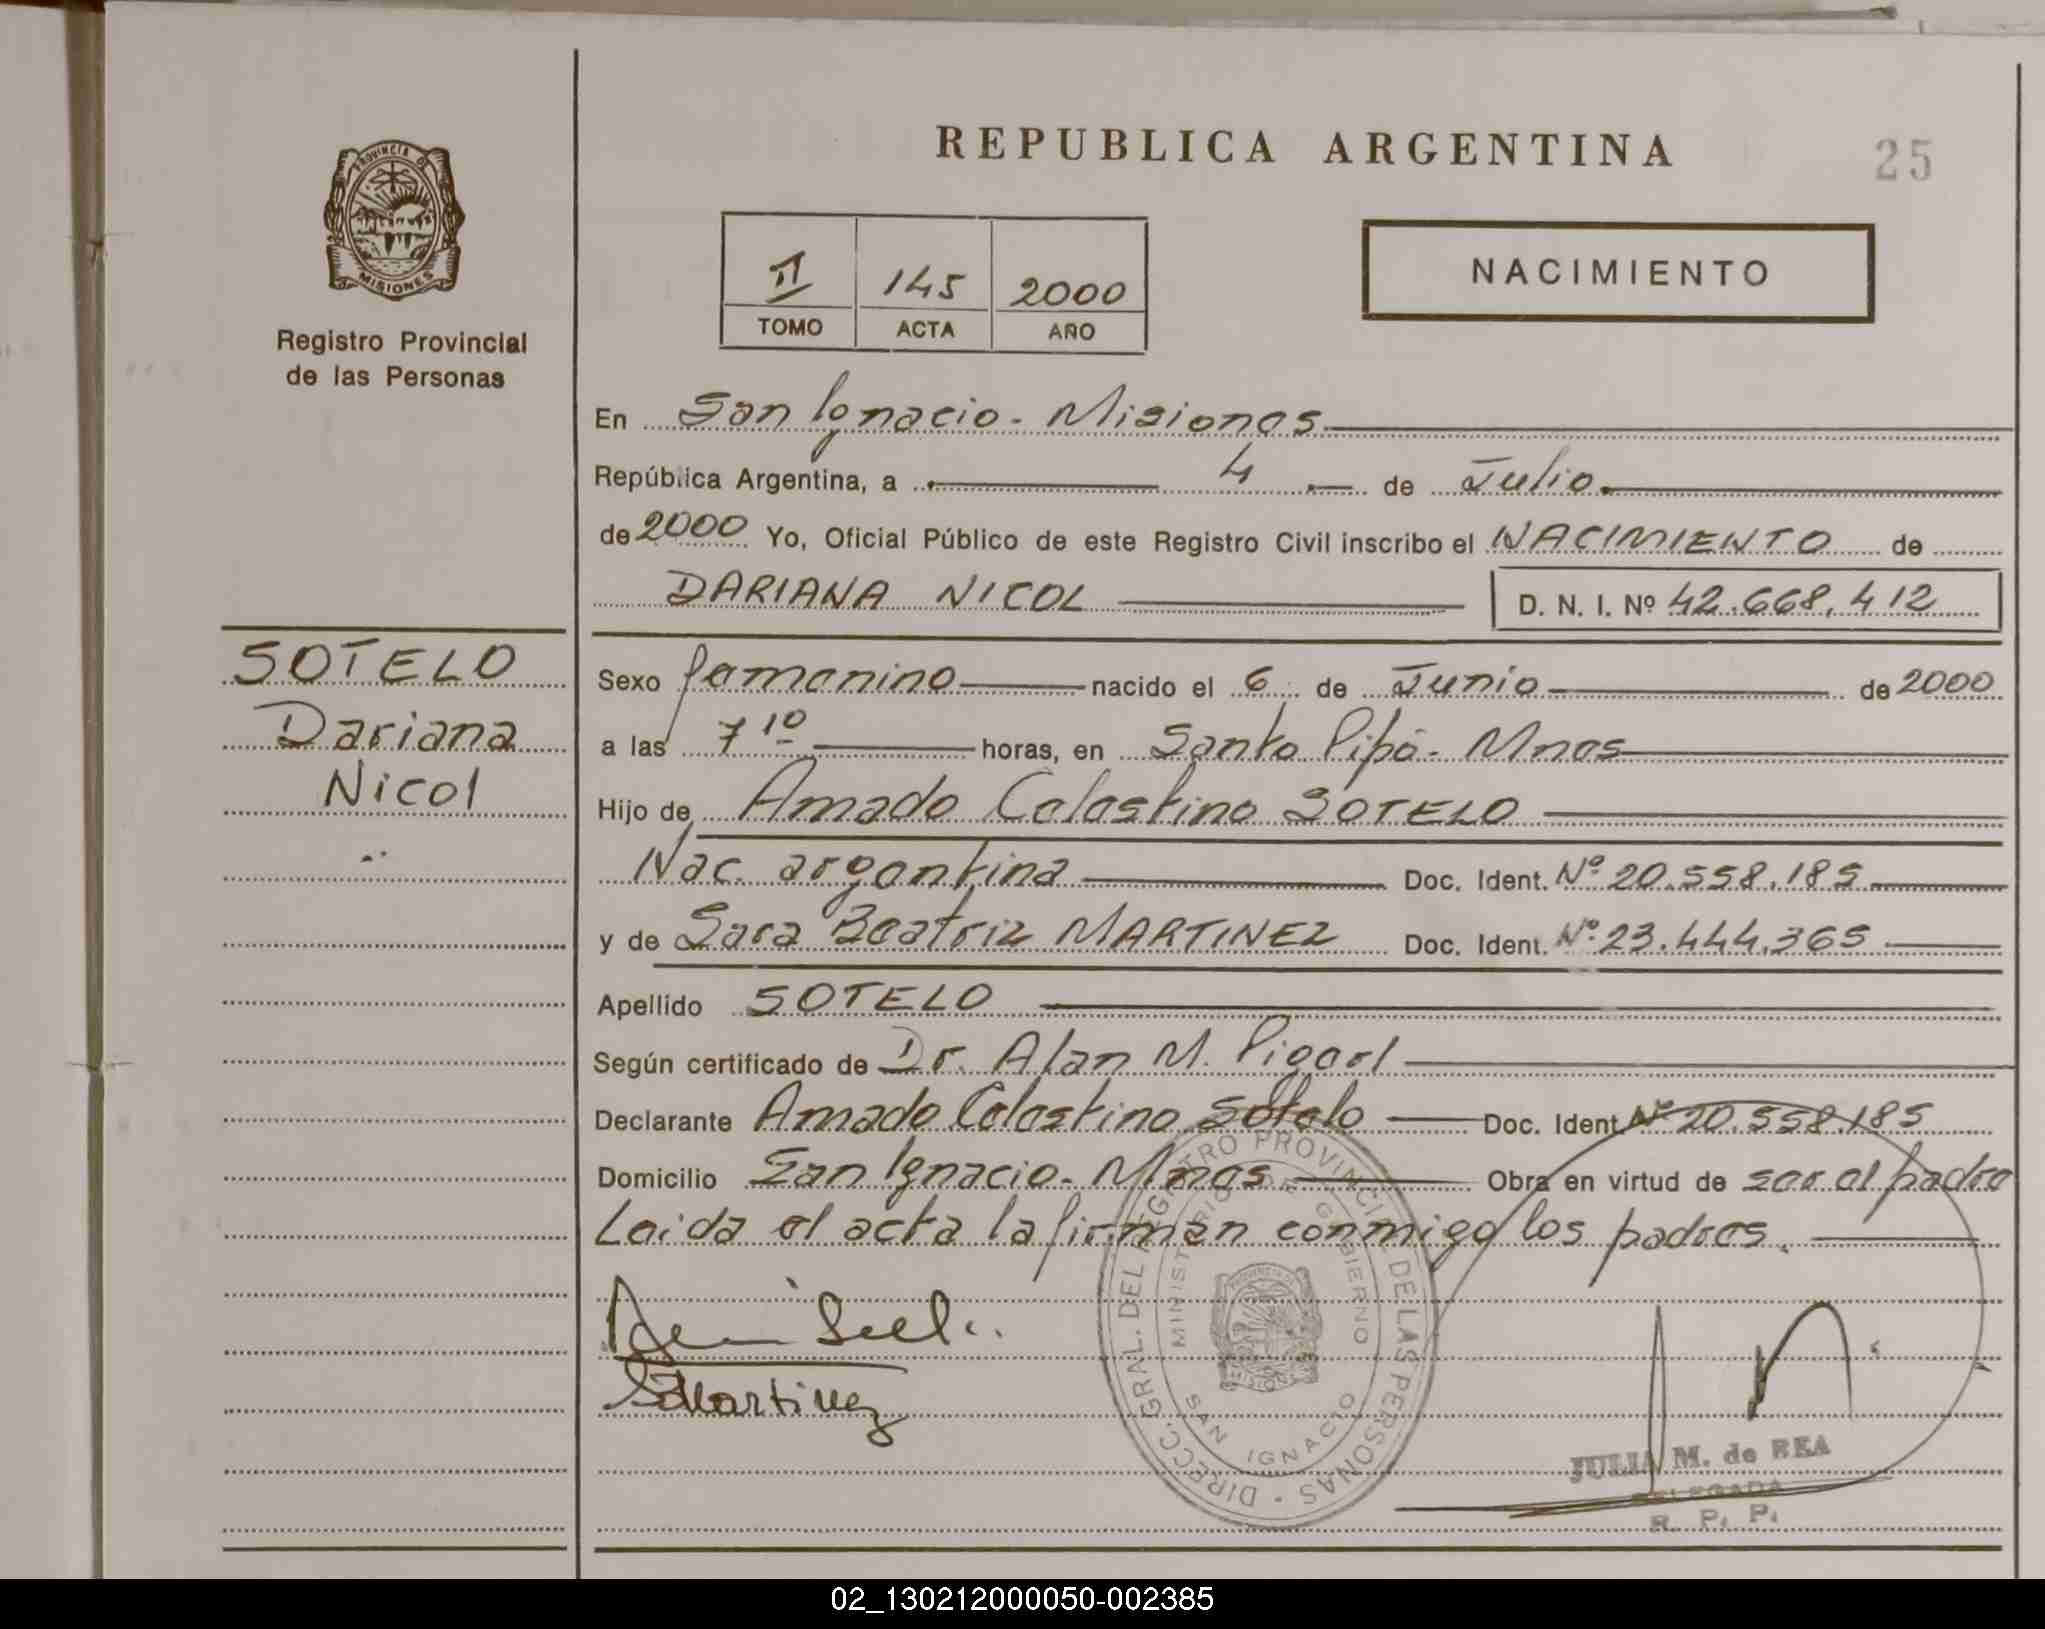 REPUBLICA ARGENTINA
25
PROVINCIA DE
MISIONES
Registro Provincial
de las Personas
II 145 2000
TOMO ACTA AÑO
NACIMIENTO
En San Ignacio - Misiones
República Argentina, a 4 de Julio
de 2000 Yo, Oficial Público de este Registro Civil inscribo el NACIMIENTO de
DARIANA NICOL D. N. I. Nº 42.668.412
SOTELO
Dariana
Nicol
Sexo femenino nacido el 6 de Junio de 2000
a las 7 10 horas, en Santo Pipó - Mnes
Hijo de Amado Celestino SOTELO
Nac. argentina Doc. Ident. Nº 20.558.185
y de Sara Beatriz MARTINEZ Doc. Ident. Nº 23.444.365
Apellido SOTELO
Según certificado de Dr. Alan M.
Declarante Amado Celestino Sotelo Doc. Ident. Nº 20.558.185
Domicilio San Ignacio - Mnes Obra en virtud de ser el padre
Leida el acta la firman conmigo los padres.
SMartinez
DIRECC. GRAL. DEL REGISTRO PROVINCIAL DE LAS PERSONAS
MINISTERIO DE GOBIERNO
SAN IGNACIO
PROVINCIA DE
MISIONES
JULIA M. de REA
DELEGADA
R. P. P.
02_130212000050-002385